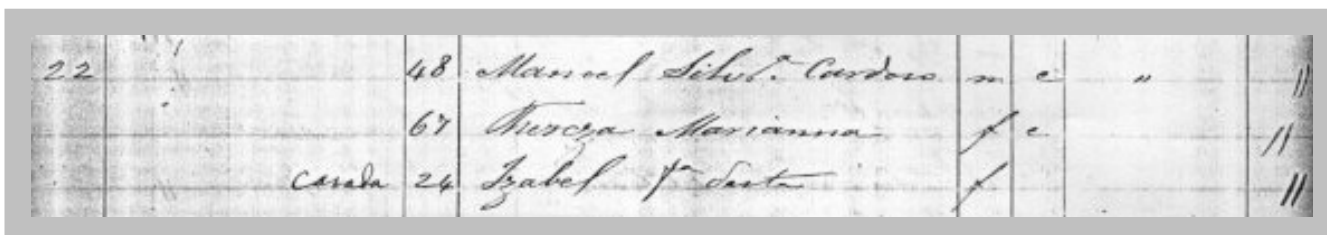 22 48 Manoel Silv.ª Cardoso m c "
67 Thereza Marianna f c
casada 24 Izabel f.ª desta f